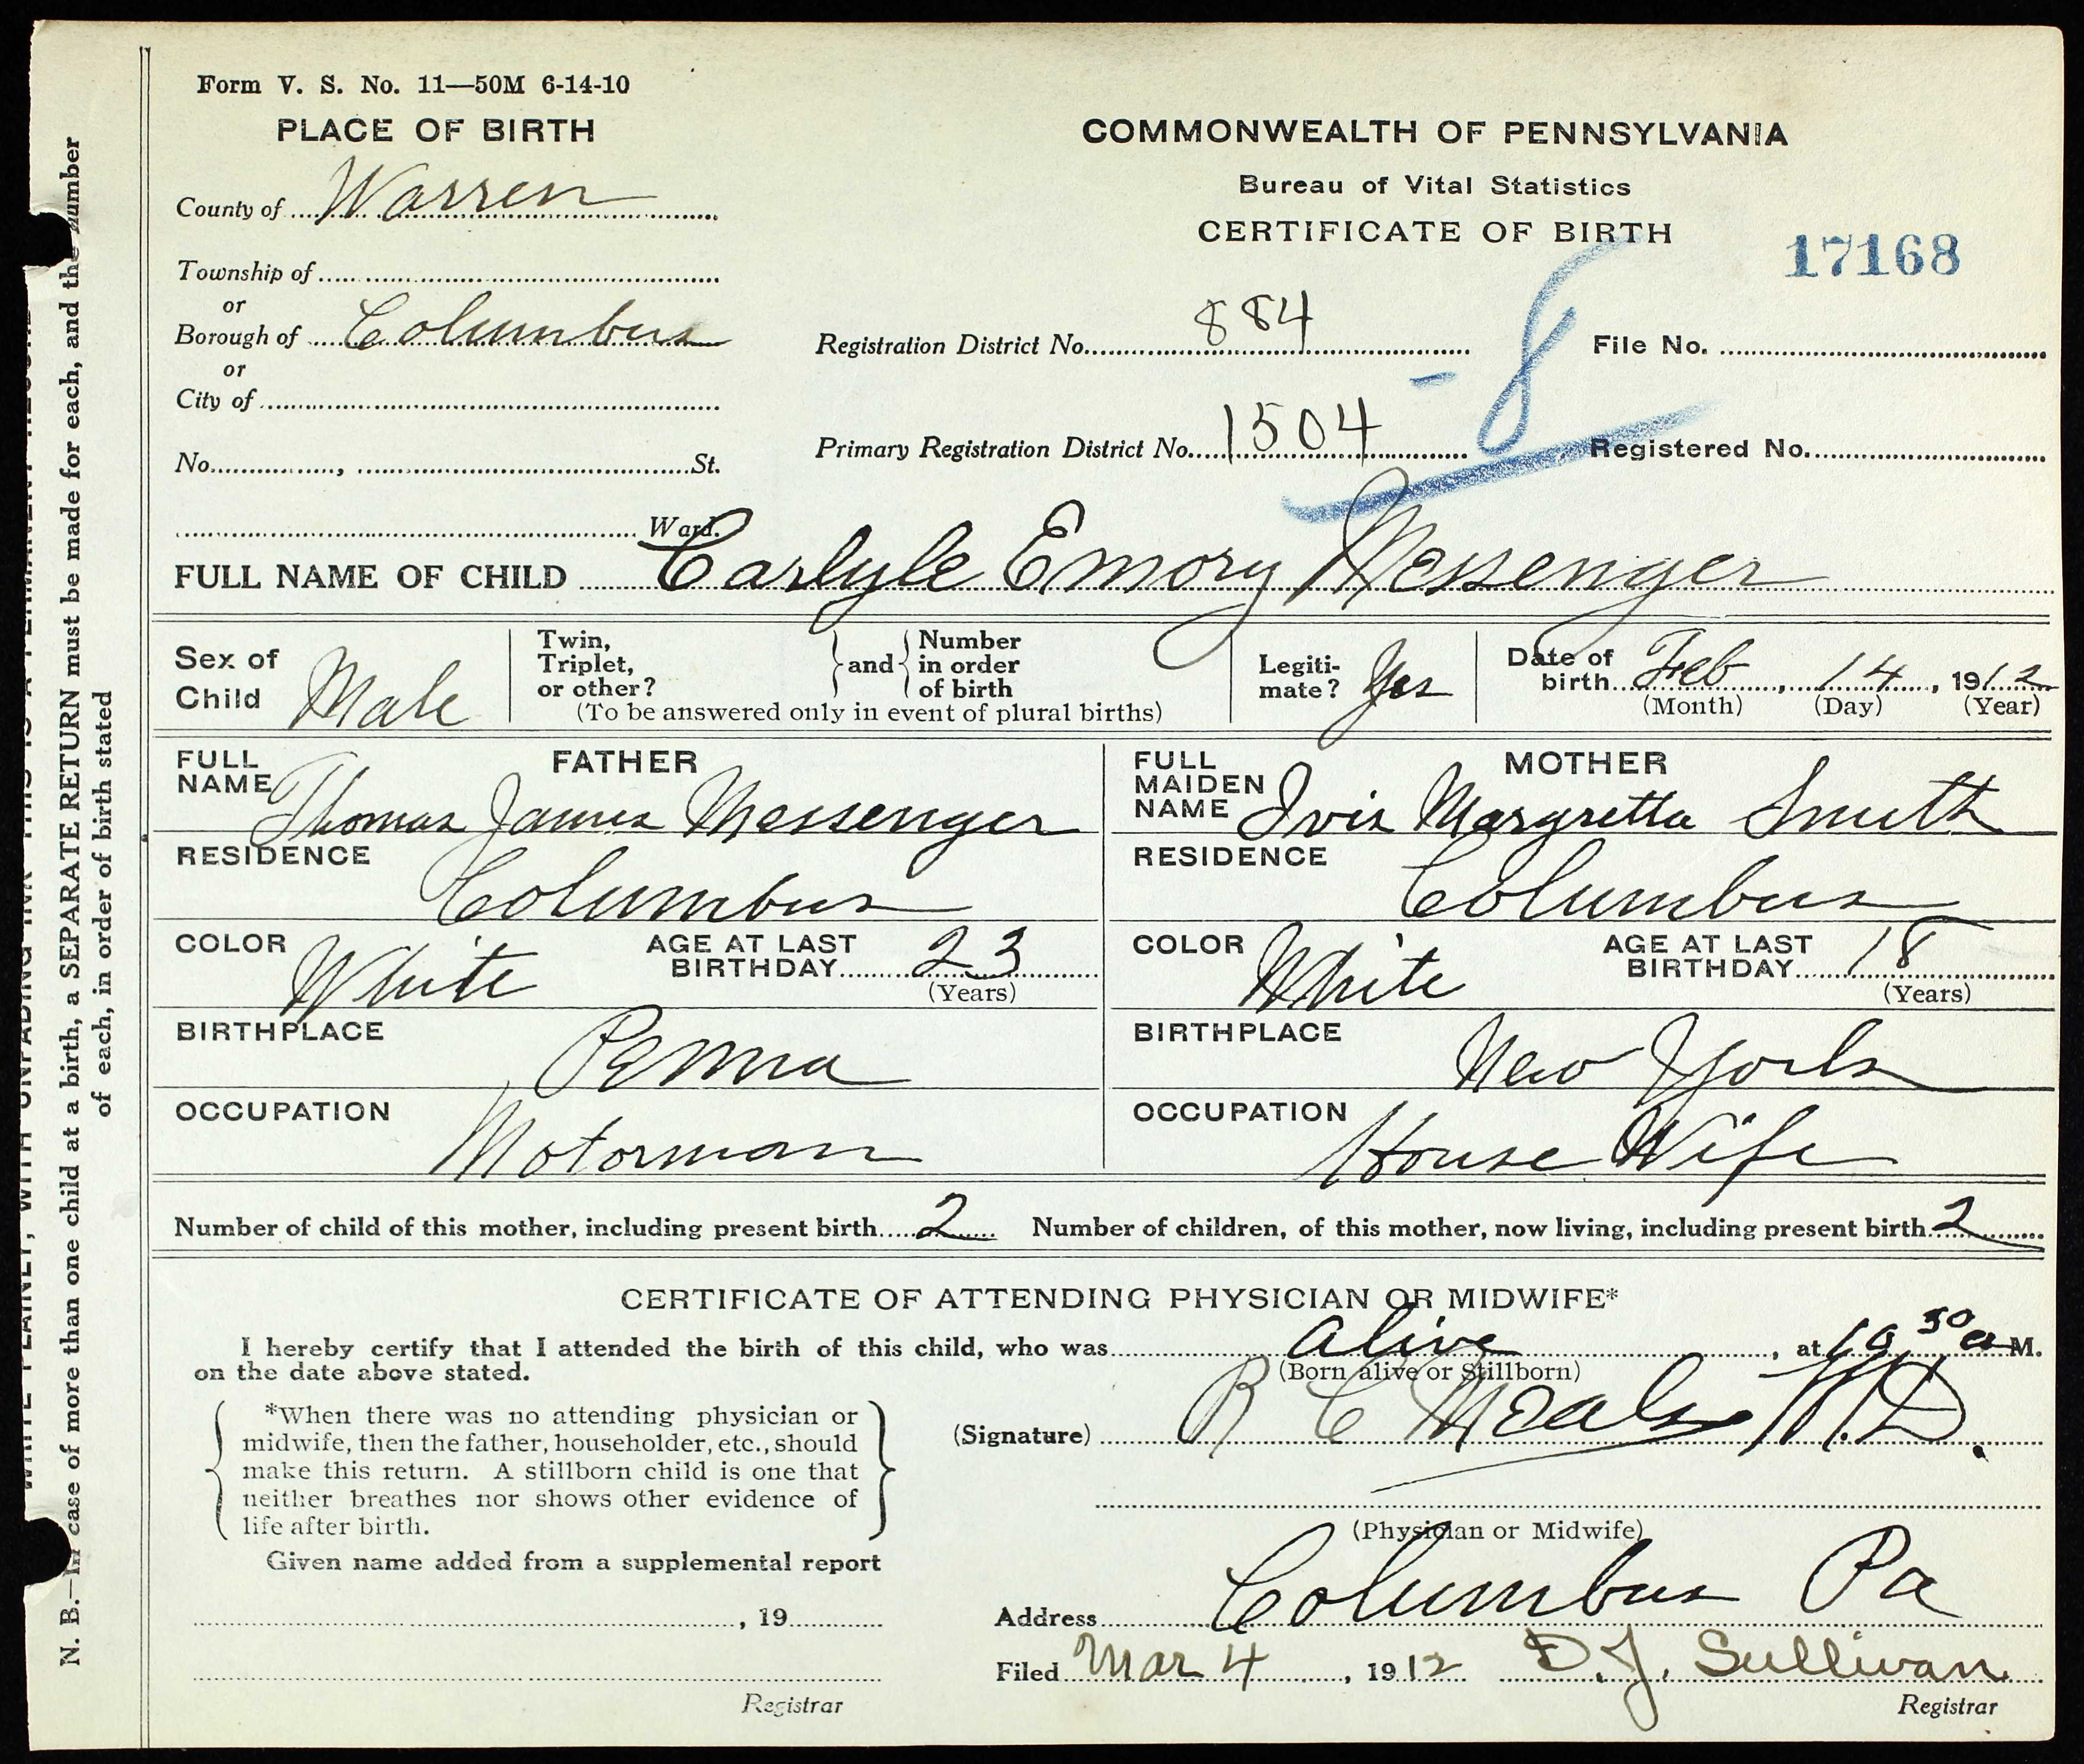 Form V. S. No. 11—50M 6-14-10
PLACE OF BIRTH
County of Warren
Township of
or
Borough of Columbus
or
City of
No. , St.
Ward.
COMMONWEALTH OF PENNSYLVANIA
Bureau of Vital Statistics
CERTIFICATE OF BIRTH
17168
Registration District No. 884
File No.
Primary Registration District No. 1504
- 8
Registered No.
FULL NAME OF CHILD Carlyle Emory Messenger
Sex of Child Male
Twin, Triplet, or other? and Number in order of birth
(To be answered only in event of plural births)
Legiti-mate? Yes
Date of birth Feb , 14 , 1912
(Month) (Day) (Year)
FATHER
FULL NAME Thomas James Messenger
RESIDENCE Columbus
COLOR White AGE AT LAST BIRTHDAY 23
(Years)
BIRTHPLACE Penna
OCCUPATION Motorman
MOTHER
FULL MAIDEN NAME Ivis Margretta Smith
RESIDENCE Columbus
COLOR White AGE AT LAST BIRTHDAY 18
(Years)
BIRTHPLACE New York
OCCUPATION House Wife
Number of child of this mother, including present birth 2 Number of children, of this mother, now living, including present birth 2
CERTIFICATE OF ATTENDING PHYSICIAN OR MIDWIFE*
I hereby certify that I attended the birth of this child, who was alive , at 10 30 a M.
(Born alive or Stillborn)
on the date above stated.
*When there was no attending physician or
midwife, then the father, householder, etc., should
make this return. A stillborn child is one that
neither breathes nor shows other evidence of
life after birth.
Given name added from a supplemental report
, 19
Registrar
(Signature) R C Meals M.D.
(Physician or Midwife)
Address Columbus Pa
Filed Mar 4 , 1912 D.J. Sullivan
Registrar
N. B.—In case of more than one child at a birth, a SEPARATE RETURN must be made for each, and the number
of each, in order of birth stated